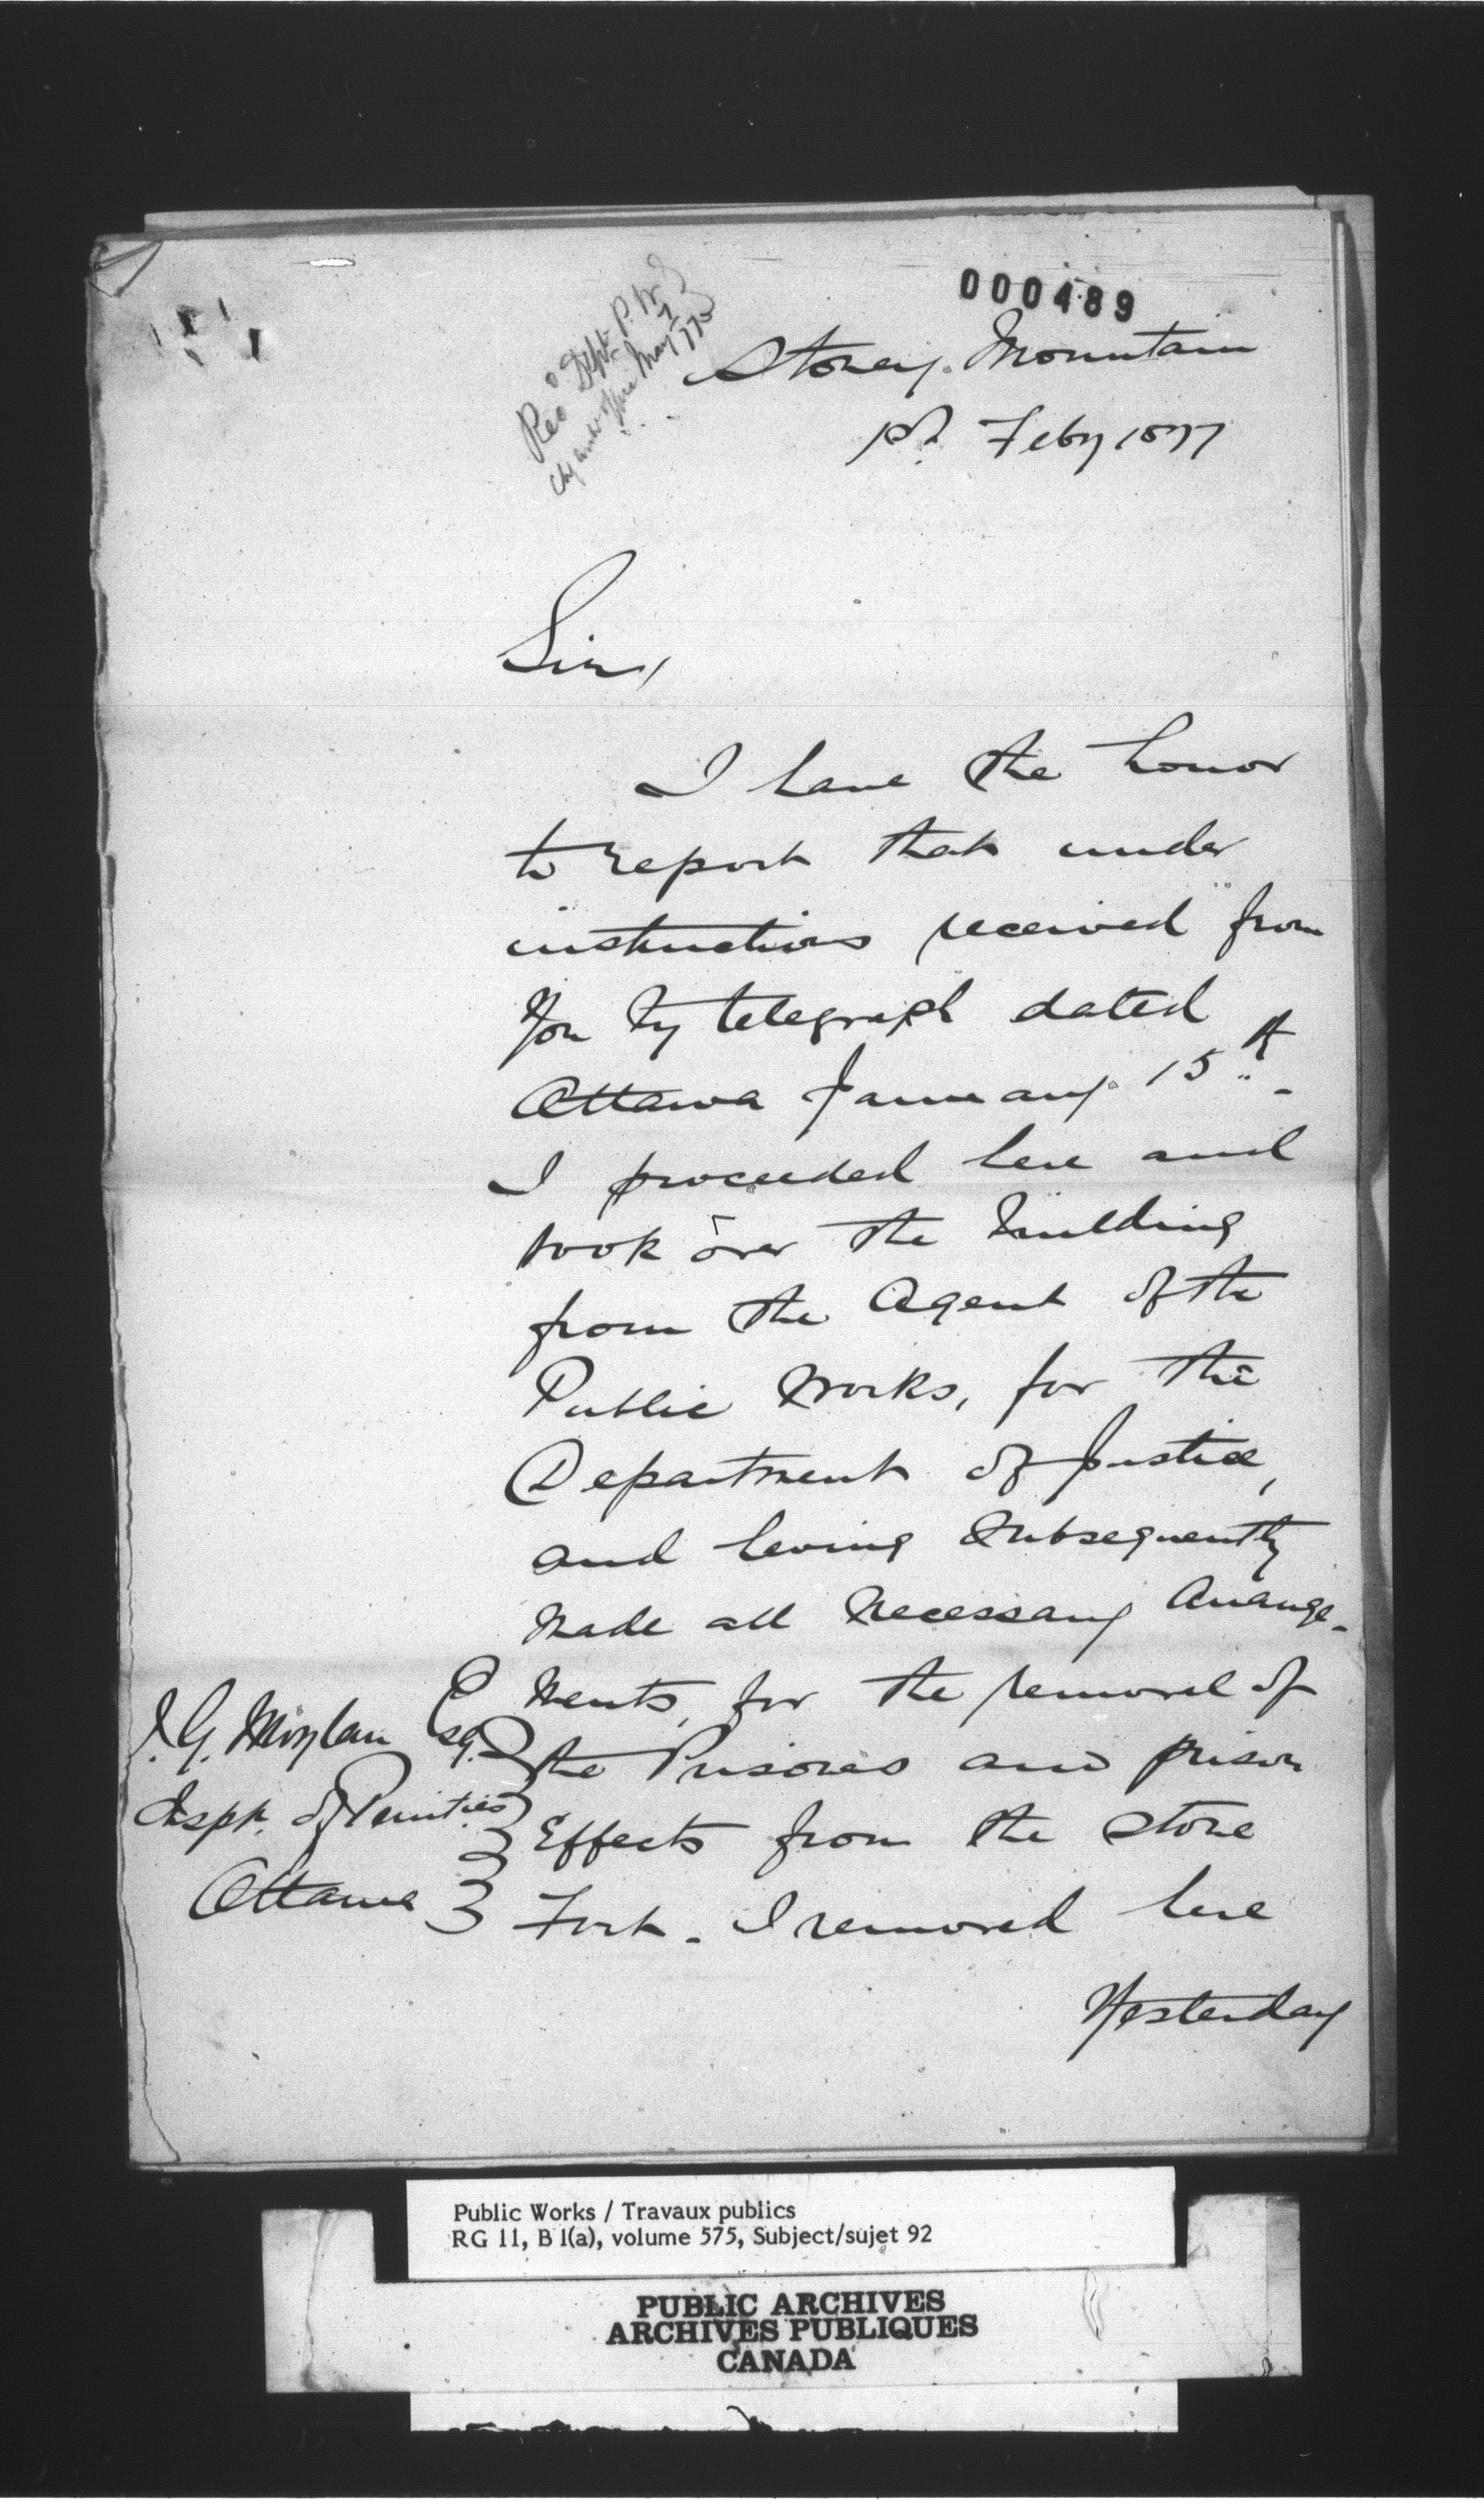 000489
Recd Dept. P. W.
May 7 / 77
Stoney Mountain
1st. Feby 1877
Sir,
I have the honor
to report that under
instructions received from
You by telegraph dated
Ottawa January 15th.
I proceeded here and
took over the building
from the Agent of the
Public Works, for the
Department of Justice,
and having subsequently
made all necessary Arrange-
ments, for the removal of
the Prisoners and prison
Effects from the Stone
Fort. I removed here
Yesterday
J. G. Moylan Esq.
Inspt. of Penit.ies
Ottawa
Public Works / Travaux publics
RG 11, B 1(a), volume 575, Subject/sujet 92
PUBLIC ARCHIVES
ARCHIVES PUBLIQUES
CANADA